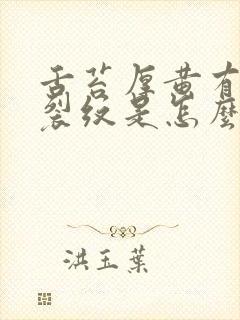 舌苔厚黄有
裂纹是怎麼
洪玉葉